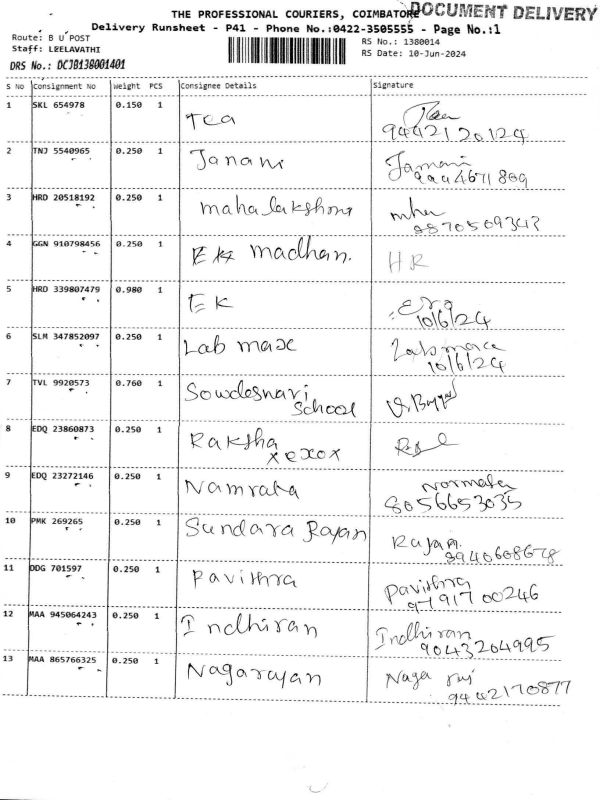 THE PROFESSIONAL COURIERS, COIMBATORE
DOCUMENT DELIVERY
Delivery Runsheet - P41 - Phone No.:0422-3505555 - Page No.:1
Route: B U POST
Staff: LEELAVATHI
DRS No.: DCJB138001401
RS No.: 1380014
RS Date: 10-Jun-2024
S No Consignment No Weight PCS Consignee Details Signature
1 SKL 654978 0.150 1 Tea
9442120124
2 TNJ 5540965 0.250 1 Janani Jamani
9994671809
3 HRD 20518192 0.250 1 maha lakshmi mha
8870509343
4 GGN 910798456 0.250 1 EK madhan. HR
5 HRD 339807479 0.980 1 EK
10/6/24
6 SLM 347852097 0.250 1 Lab max Labmax
10/6/24
7 TVL 9920573 0.760 1 Sowdesnari
School
8 EDQ 23860873 0.250 1 Raksha
xexox
9 EDQ 23272146 0.250 1 Namrata Normata
8056653035
10 PMK 269265 0.250 1 Sundara Rajan Rajan.
9940608678
11 DDG 701597 0.250 1 Pavithra Pavithra
9791700246
12 MAA 945064243 0.250 1 Indhiran Indhiran
9043264995
13 MAA 865766325 0.250 1 Nagarajan Naga raj
9442170877